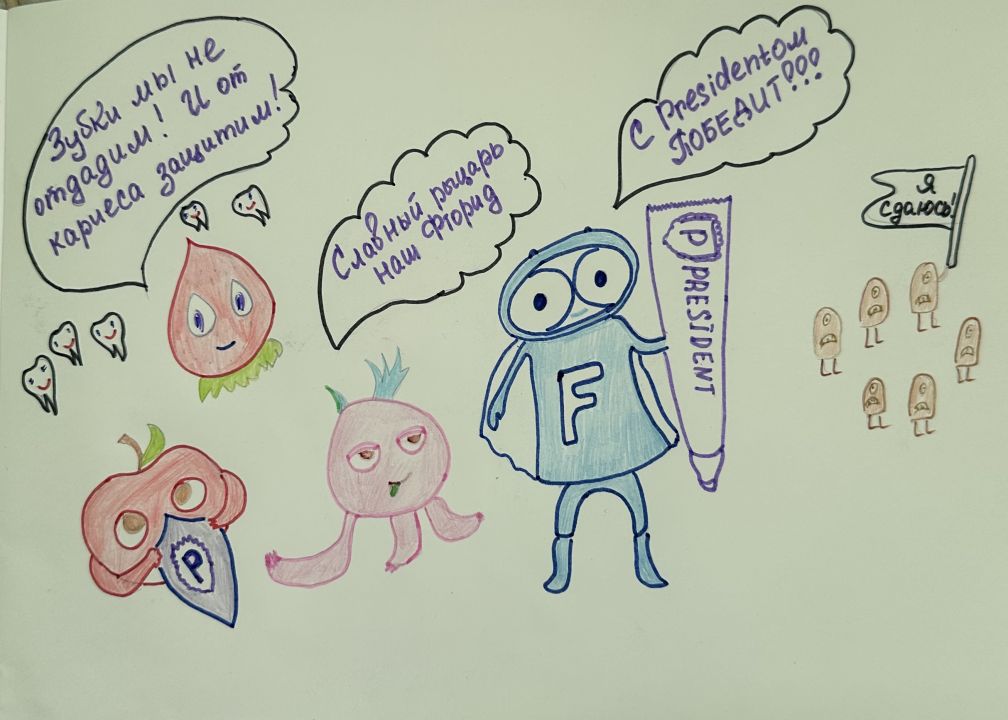 Зубки мы не
отдадим! И от
кариеса защитим!
Славный рыцарь
наш Фторид
С Presidentом
ПОБЕДИТ!!!
Я
сдаюсь!
P PRESIDENT
F
P